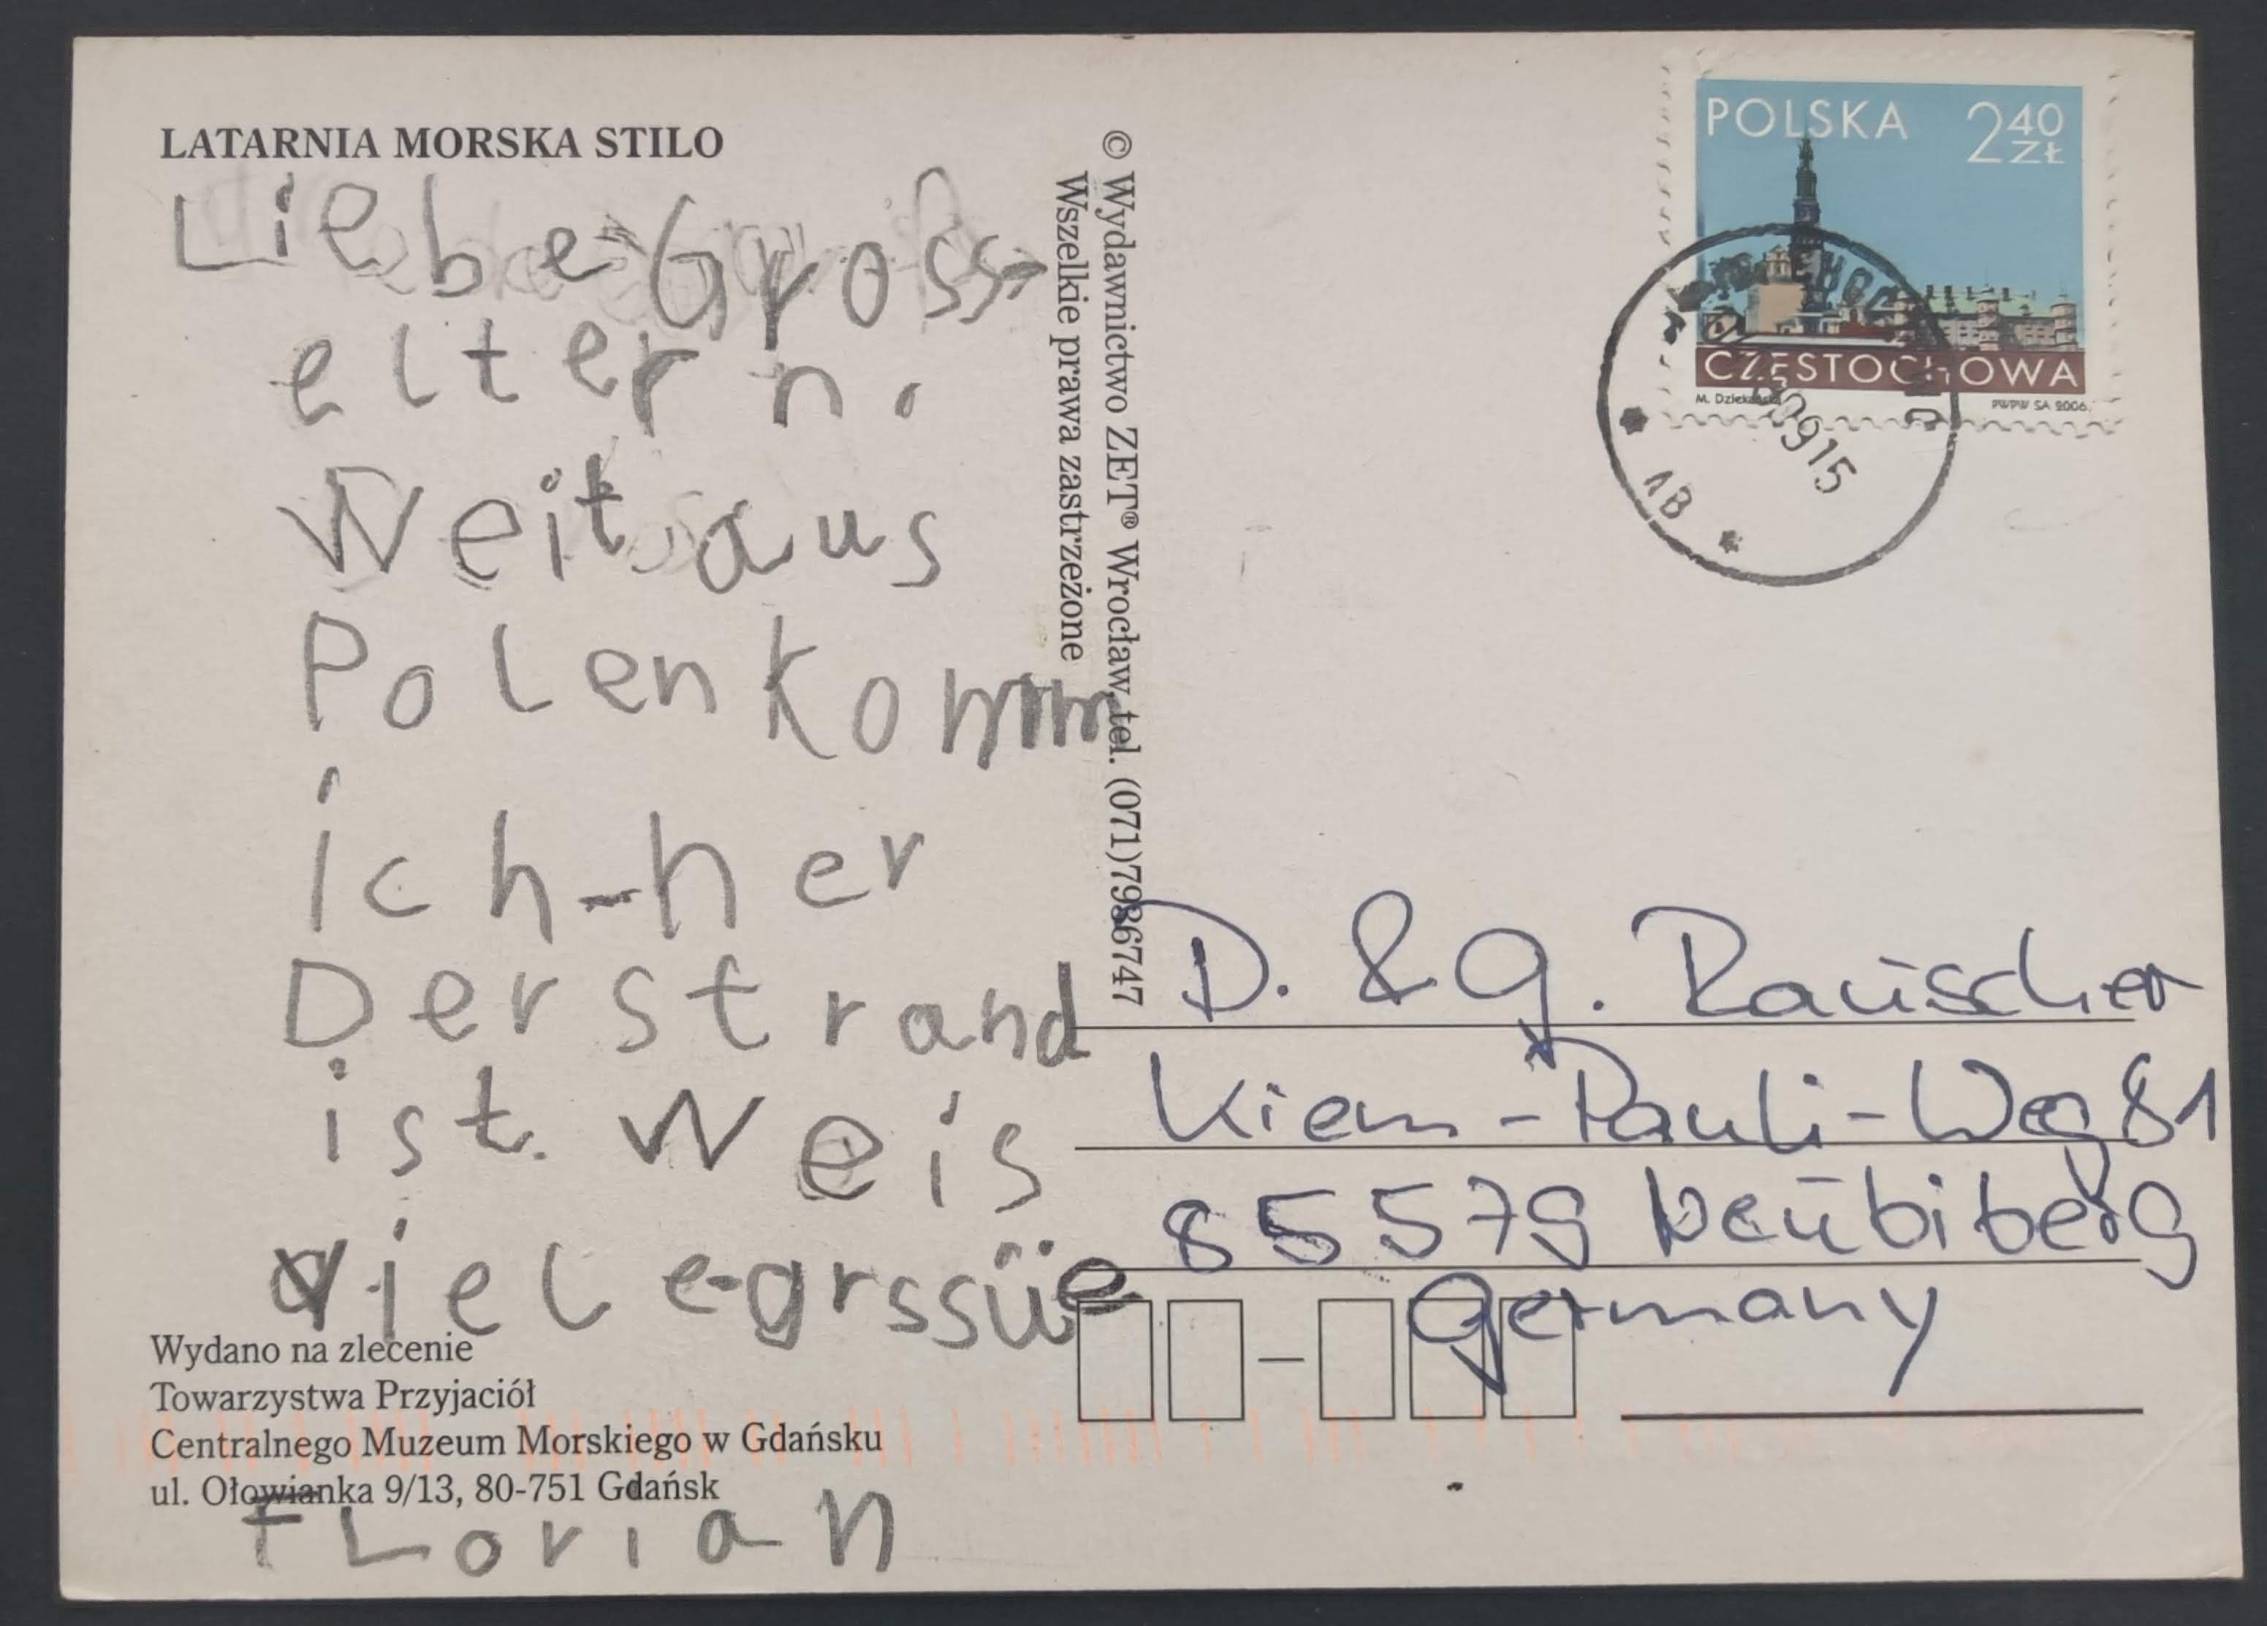 LATARNIA MORSKA STILO
Liebe Gross-
eltern.
Weit aus
Polen komm
ich her
Der strand
ist weis
viele grssüe
Wydano na zlecenie
Towarzystwa Przyjaciół
Centralnego Muzeum Morskiego w Gdańsku
ul. Ołowianka 9/13, 80-751 Gdańsk
FLorian
© Wydawnictwo ZET® Wrocław, tel. (071)7986747
Wszelkie prawa zastrzeżone
POLSKA 2 40 ZŁ
CZĘSTOCHOWA
PWPW SA 2006.
0915
AB
D. & G. Rauscher
Kiem-Pauli-Weg 81
85579 Neubiberg
Germany